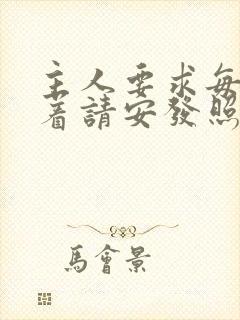 主人要求每
著請安發照
馬會景